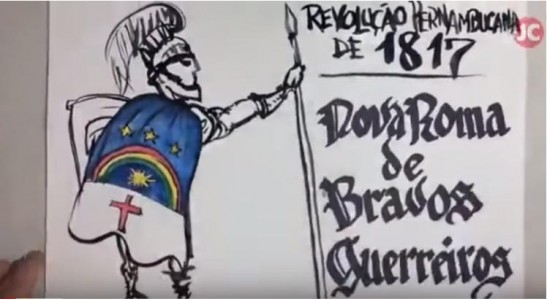 REVOLUÇÃO PERNAMBUCANA
DE 1817
JC
Nova Roma
de
Bravos
Guerreiros